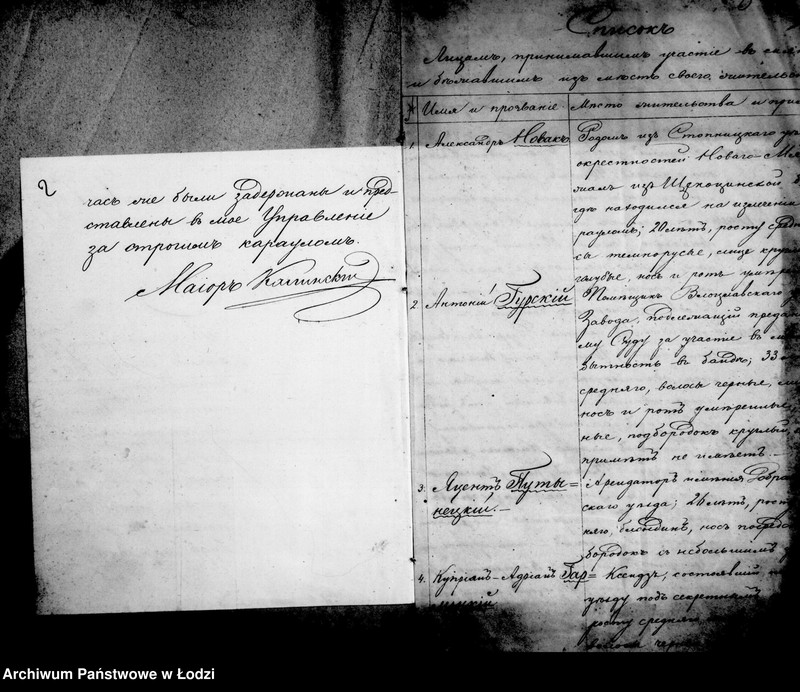 2
часъ же были задержаны и пред-
ставлены въ мое Управленіе
за строгимъ карауломъ.
Маіоръ Калинскій
Списокъ
Лицамъ, принимавшимъ участіе въ
и бѣжавшимъ изъ мѣстъ своего жительс
№ Имя и прозваніе Мѣсто жительства и при
1. Александръ Новакъ
Родомъ изъ Стопницкаго уѣ
окрестностей Новаго
изъ Щекоцинской
гдѣ находился на излечені
карауломъ; 20 лѣтъ, росту средн
сы темнорусые, лице круг
голубые, носъ и ротъ умѣре
2 Антоній Гурскій
Помѣщикъ Влоцлавскаго
Завода, подлежащій предан
му Суду за участіе въ
бытность въ бандѣ; 33
средняго, волосы черные,
носъ и ротъ умѣренные,
ные, подбородокъ круглый,
примѣтъ не имѣетъ.
3. Яцентъ Путы=
нецкій.
Арендаторъ имѣнія Добра
скаго уѣзда; 26 лѣтъ, рост
няго, блондинъ, носъ посред
бородокъ съ небольшимъ
4. Купріанъ-Адріанъ Гар=
Ксендзъ, состоявшій
уѣзду подъ секретнымъ
росту средняго
волосы чер
Archiwum Państwowe w Łodzi